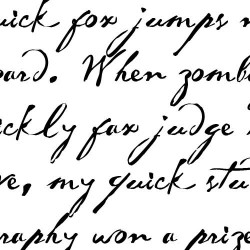 uick fox jumps n
oard. When zomb
ickly fax judge
ve, my quick stu
raphy won a prize